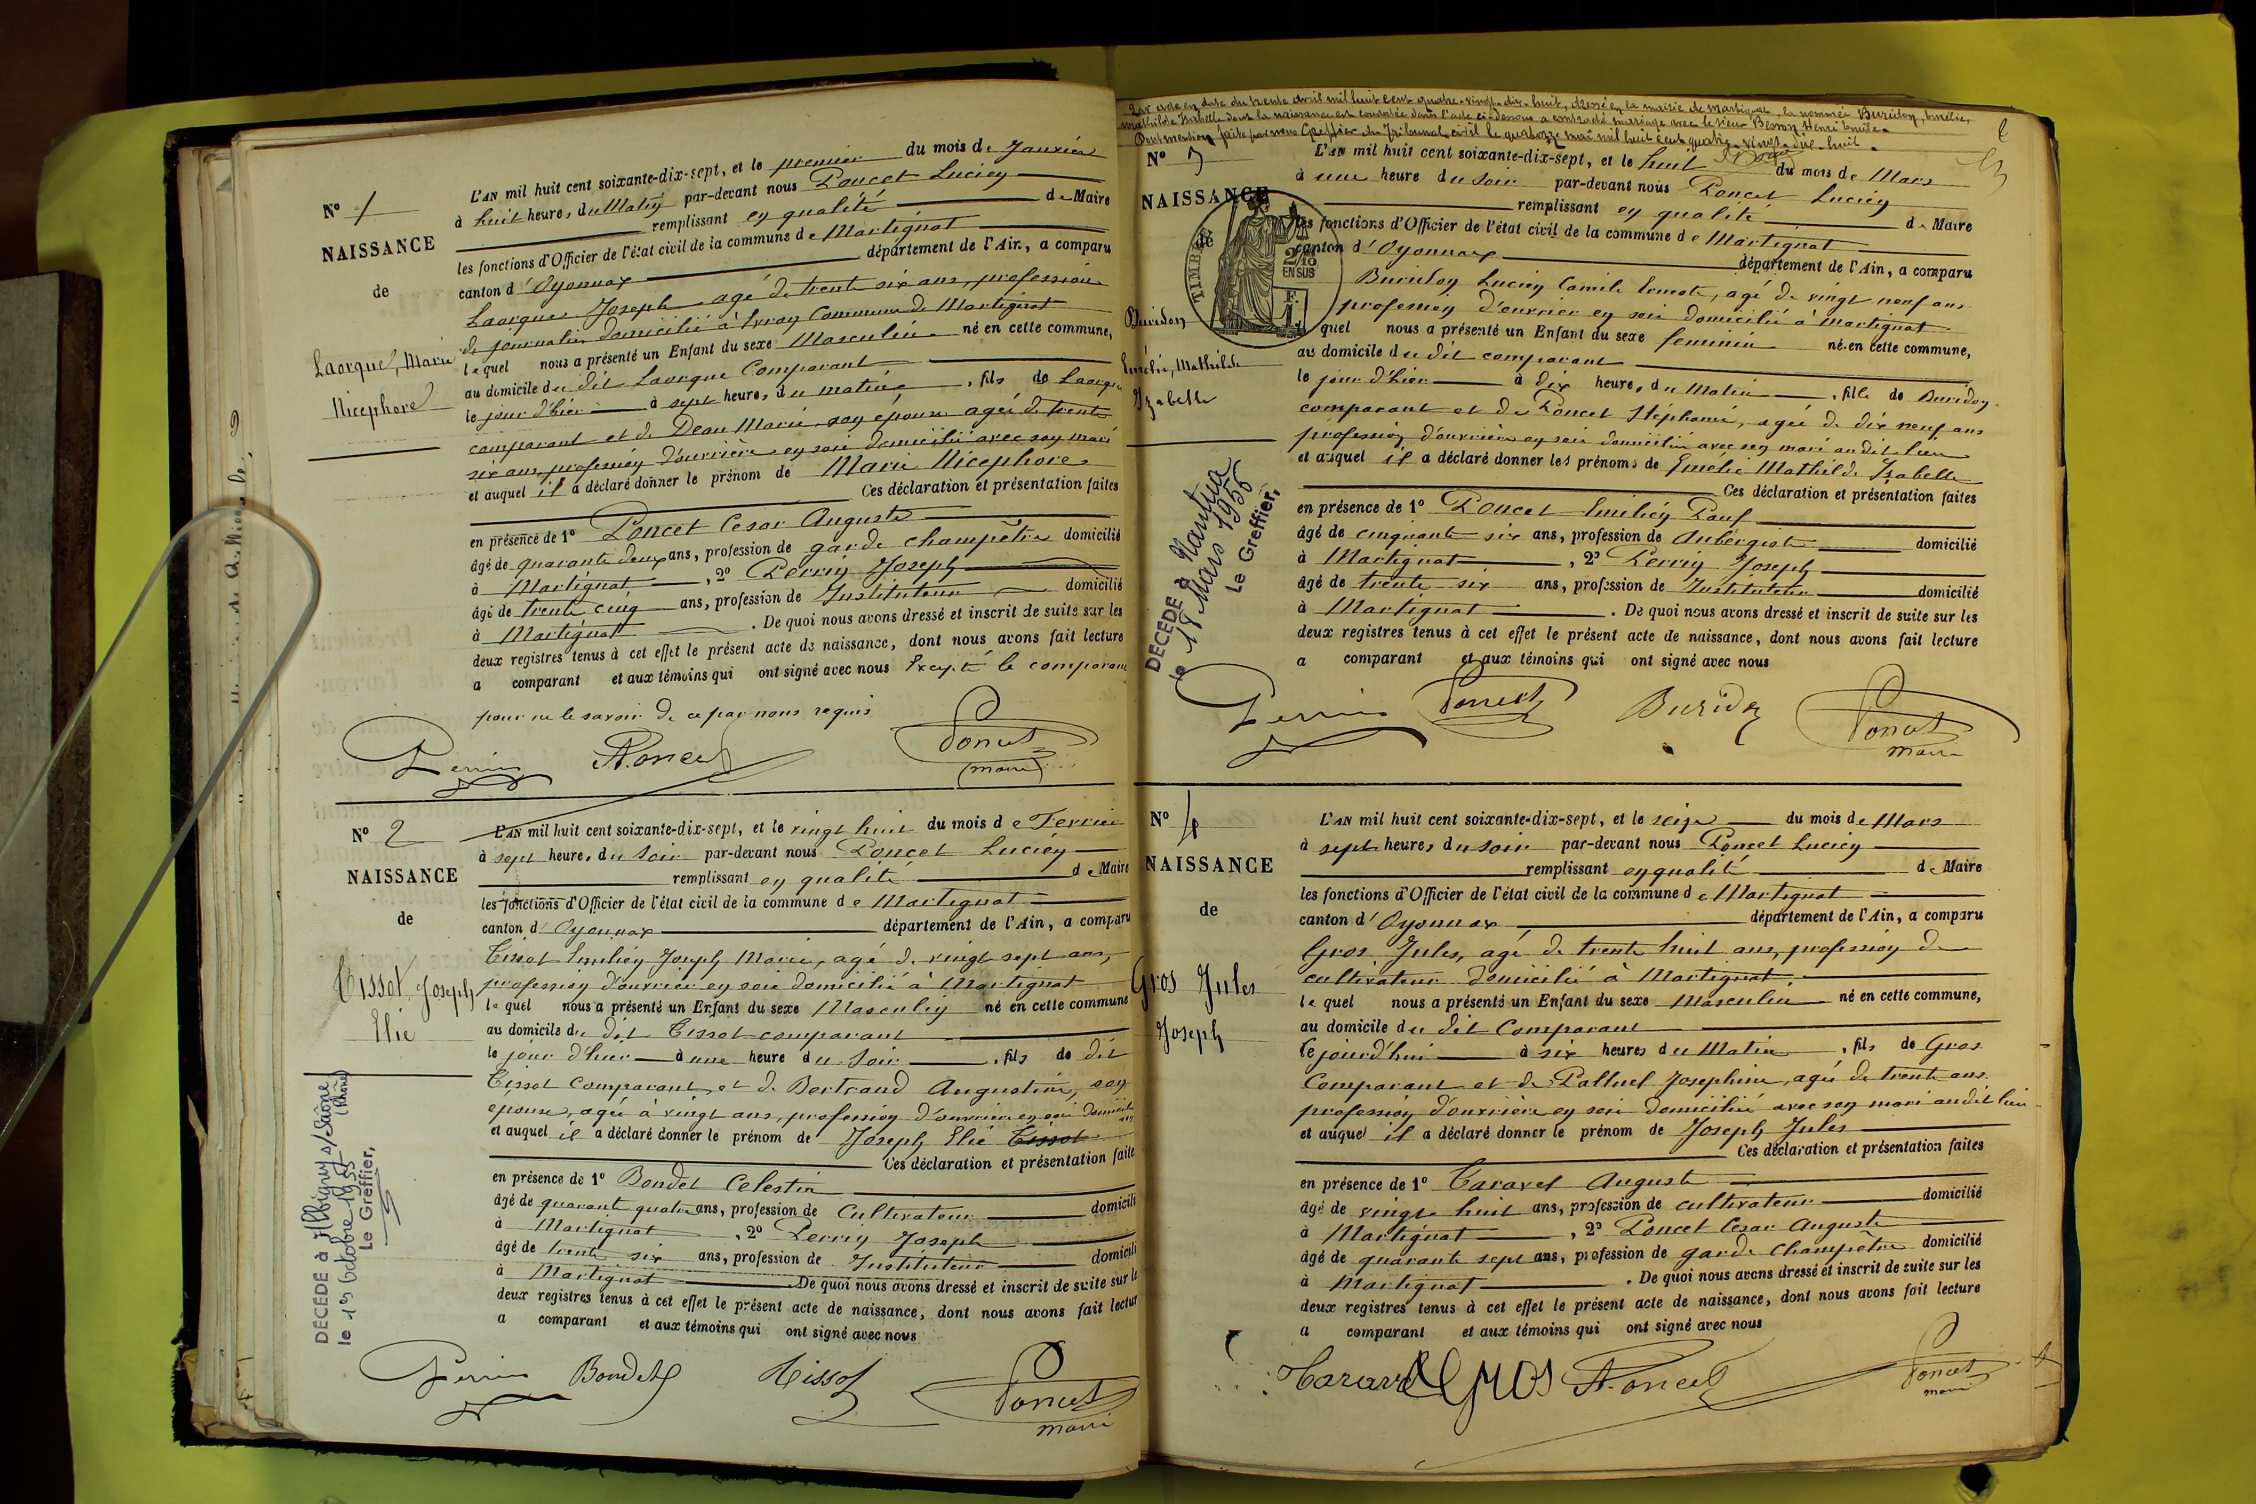 L'AN mil huit cent soixante-dix-sept, et le premier du mois de Janvier
à huit heures du Matin par-devant nous Poncet Lucien
remplissant en qualité de Maire
les fonctions d'Officier de l'état civil de la commune de Martignat
canton d'Oyonnax département de l'Ain, a comparu
Laorgue Joseph agé de trente six ans, profession
de journalier domicilié à Evron Commune de Martignat
lequel nous a présenté un Enfant du sexe Masculin né en cette commune,
au domicile du dit Laorgue Comparant
le jour d'hier à sept heures du matin, fils de Laorgue
comparant et de Dean Marie son épouse agée de trente
six ans, profession d'ouvrière en soie domiciliée avec son mari
et auquel il a déclaré donner le prénom de Marie Nicephore
Ces déclaration et présentation faites
en présence de 1º Poncet Cesar Auguste
âgé de quarante deux ans, profession de garde champêtre domicilié
à Martignat, 2º Perrin Joseph
âgé de trente cinq ans, profession de Instituteur domicilié
à Martignat. De quoi nous avons dressé et inscrit de suite sur les
deux registres tenus à cet effet le présent acte de naissance, dont nous avons fait lecture
a comparant et aux témoins qui ont signé avec nous Excepté le comparant
pour ne le savoir de ce par nous requis
Perrin A. Poncet Poncet
(maire)
Nº 1
NAISSANCE
de
Laorgue, Marie
Nicephore
Nº 2
NAISSANCE
de
Tissot Joseph
Elie
DÉCÉDÉ à Albigny s/Saône
(Rhône)
le 1er Octobre 1955
Le Greffier,
L'AN mil huit cent soixante-dix-sept, et le vingt huit du mois de Fevrier
à sept heures du soir par-devant nous Poncet Lucien
remplissant en qualité de Maire
les fonctions d'Officier de l'état civil de la commune de Martignat
canton d'Oyonnax département de l'Ain, a comparu
Tissot Emilien Joseph Marie, agé de vingt sept ans,
profession d'ouvrier en soie domicilié à Martignat
lequel nous a présenté un Enfant du sexe Masculin né en cette commune
au domicile du dit Tissot comparant
le jour d'hier à une heure du soir, fils de dit
Tissot comparant et de Bertrand Augustine, son
epouse, agée à vingt ans, profession d'ouvrière en soie
et auquel il a déclaré donner le prénom de Joseph Elie Tissot
Ces déclaration et présentation faite
en présence de 1º Bondet Celestin
âgé de quarante quatre ans, profession de Cultivateur domicili
à Martignat, 2º Perrin Joseph
âgé de trente six ans, profession de Instituteur domicili
à Martignat De quoi nous avons dressé et inscrit de suite sur le
deux registres tenus à cet effet le présent acte de naissance, dont nous avons fait lectur
a comparant et aux témoins qui ont signé avec nous
Perrin Bondet Tissot Poncet
maire
Par acte en date du trente avril mil huit cent quatre-vingt-dix-huit, dressé en la mairie de Martignat, la nommée Buridon, Emélie,
Mathilde Izabelle dont la naissance est constatée dans l'acte ci-dessous a contracté mariage avec le sieur
Dont mention faite par nous Greffier du Tribunal civil le quatorze mai mil huit cent quatre-vingt-dix-huit.
Nº 3
NAISSANCE
de
TIMBRE
2/10
EN SUS
Buridon
Emélie, Mathilde
Izabelle
DÉCÉDÉ à Nantua
le 18 Mars 1956
Le Greffier,
L'AN mil huit cent soixante-dix-sept, et le huit du mois de Mars
à une heure du soir par-devant nous Poncet Lucien
remplissant en qualité de Maire
les fonctions d'Officier de l'état civil de la commune de Martignat
canton d'Oyonnax département de l'Ain, a comparu
Buridon Lucien Camile Ernest, agé de vingt neuf ans
profession d'ouvrier en soie domicilié à Martignat
quel nous a présenté un Enfant du sexe feminin né en cette commune,
au domicile du dit comparant
le jour d'hier à dix heures du Matin, fille de Buridon
comparant et de Poncet Stéphanie, agée de dix neuf ans
profession d'ouvrière en soie domiciliée avec son mari audit lieu
et auquel il a déclaré donner les prénoms de Emélie Mathilde Izabelle
Ces déclaration et présentation faites
en présence de 1º Poncet Emilien Paul
âgé de cinquante six ans, profession de Aubergiste domicilié
à Martignat, 2º Perrin Joseph
âgé de trente six ans, profession de Instituteur domicilié
à Martignat. De quoi nous avons dressé et inscrit de suite sur les
deux registres tenus à cet effet le présent acte de naissance, dont nous avons fait lecture
a comparant et aux témoins qui ont signé avec nous
Perrin Poncet Buridon Poncet
maire
Nº 4
NAISSANCE
de
Gros Jules
Joseph
L'AN mil huit cent soixante-dix-sept, et le seize du mois de Mars
à sept heures du soir par-devant nous Poncet Lucien
remplissant en qualité de Maire
les fonctions d'Officier de l'état civil de la commune de Martignat
canton d'Oyonnax département de l'Ain, a comparu
Gros, Jules, agé de trente huit ans, profession de
cultivateur domicilié à Martignat
lequel nous a présenté un Enfant du sexe Masculin né en cette commune,
au domicile du dit Comparant
le jourd'hui à six heures du Matin, fils de Gros
Comparant et de Palluel Josephine, agée de trente ans
profession d'ouvrière en soie domiciliée avec son mari audit lieu
et auquel il a déclaré donner le prénom de Joseph Jules
Ces déclaration et présentation faites
en présence de 1º Taravel Auguste
âgé de vingt huit ans, profession de cultivateur domicilié
à Martignat, 2º Poncet Cesar Auguste
âgé de quarante sept ans, profession de garde champêtre domicilié
à Martignat. De quoi nous avons dressé et inscrit de suite sur les
deux registres tenus à cet effet le présent acte de naissance, dont nous avons fait lecture
a comparant et aux témoins qui ont signé avec nous
Taravel Gros A. Poncet Poncet
maire